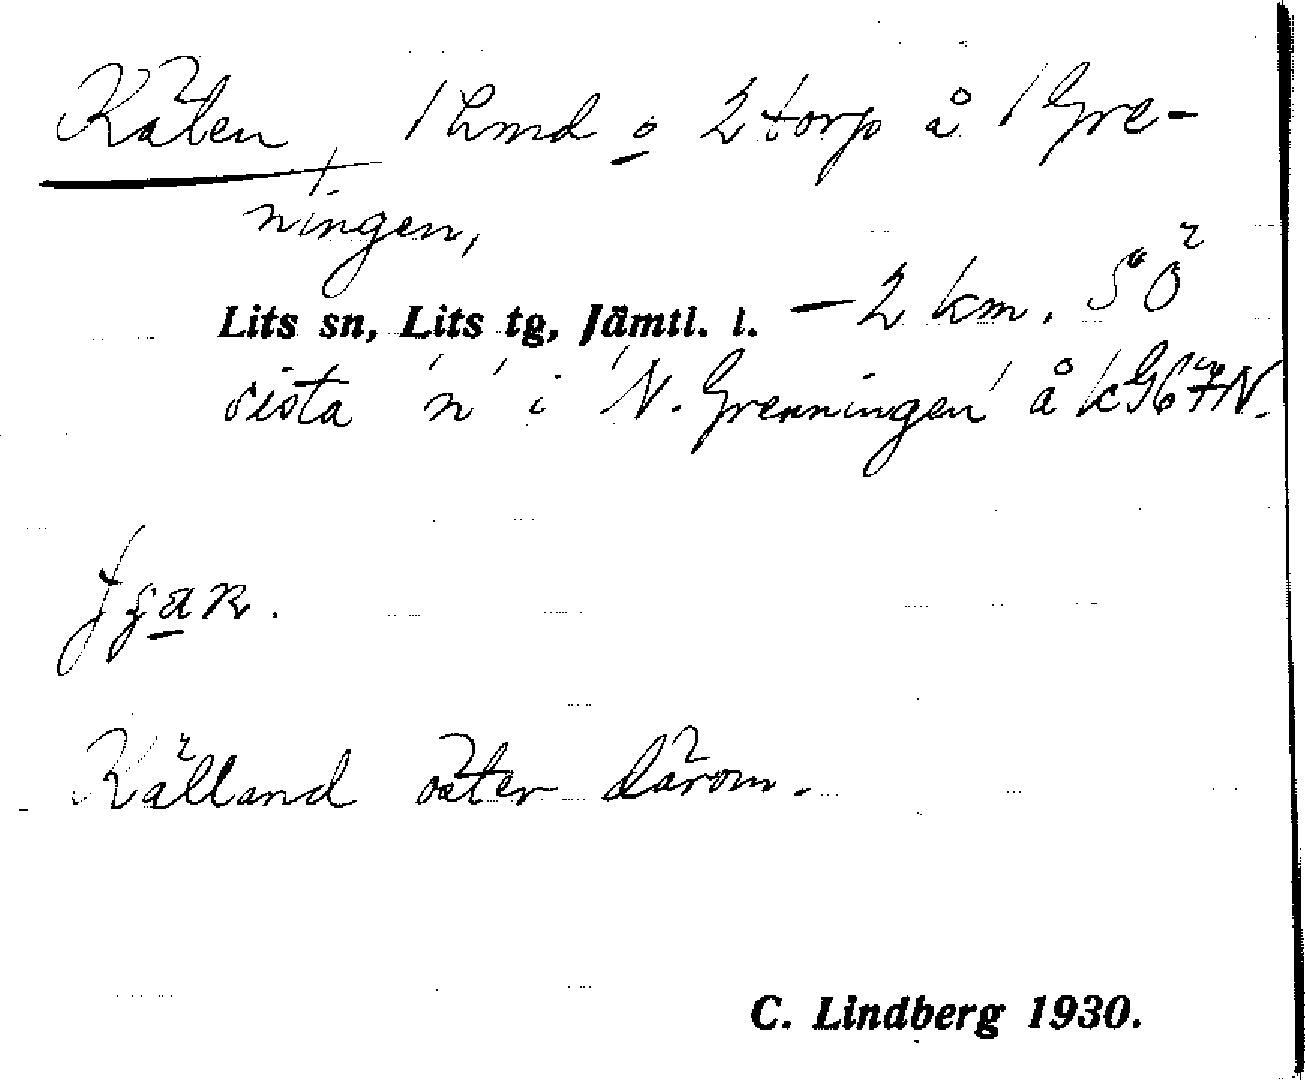 Kälen 1 hmd o 2 torp å Gre-
ningen,
Lits sn, Lits tg, Jämtl. l. – 2 km. SÖ
sista 'n' i 'N. Grenningen' å kG67N.
Källand öster därom.
C. Lindberg 1930.